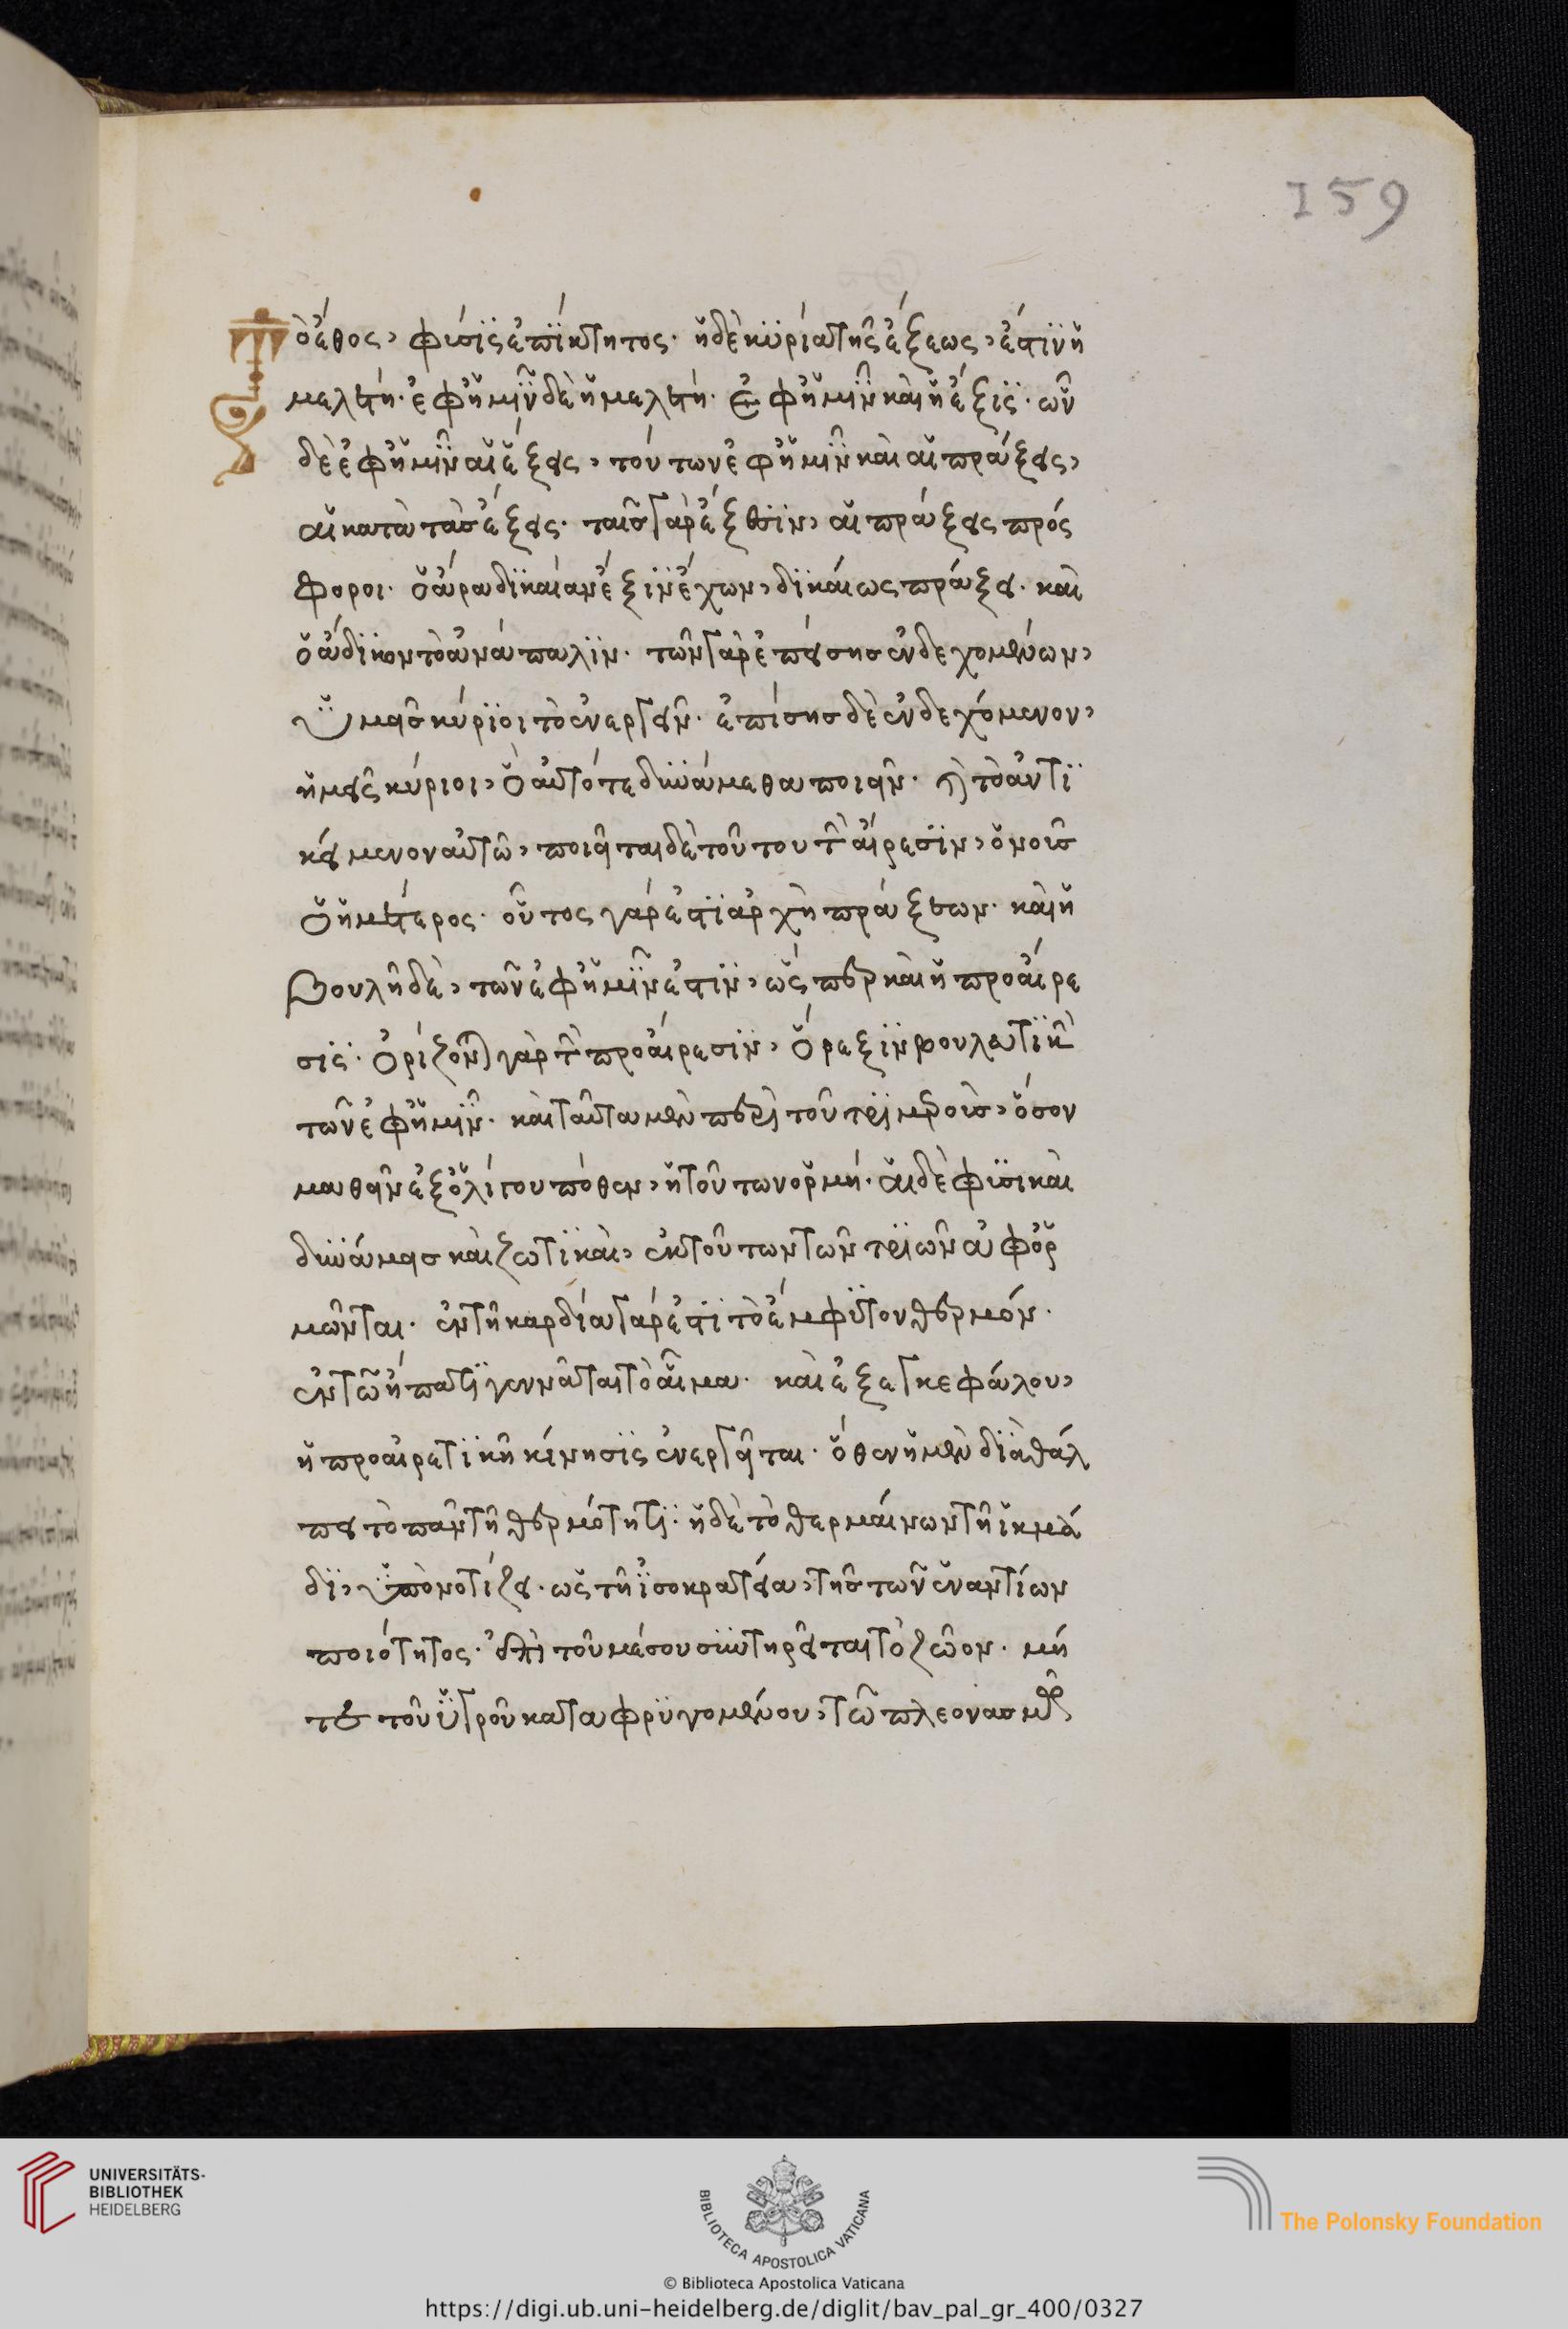 159
Τὸ ἔθος, φύσϊς ἐπΐκτητος· ἡ δὲ κϋρία τῆς ἕξεως, ἐστὶν ἡ
μελέτη· ἐφ' ἡμῖν δὲ ἡ μελέτη· ἐφ' ἡμῖν καὶ ἡ ἕξϊς· ὧν
δὲ ἐφ' ἡμῖν αἱ ἕξεις, τούτων ἐφ' ἡμῖν καὶ αἱ πράξεις,
αἱ κατὰ τὰσ ἕξεις· ταῖσ γὰρ ἕξεσϊν, αἱ πράξεις πρόσ
φοροι· ὁ ἄρα δϊκαίαν ἕξιν ἔχων, δϊκαίως πράξει· καὶ
ὁ ἄδϊκον τὸ ἀνάπαλϊν· τῶν γὰρ ἐπείσησ ἐνδεχομένων,
ὑμεῖσ κύρϊοι τὸ ἐνεργεῖν· ἐπίσησ δὲ ἐνδεχόμενον,
ἡμεῖς κύριοι, ὃ αὐτό τε δυνάμεθα ποιεῖν· καὶ τὸ ἀντϊ
κείμενον αὐτῶ, ποιεῖται δὲ τούτου τὴν αἵρεσϊν, ὁ νοῦσ
ὁ ἡμέτερος· οὗτος γάρ ἐστϊ ἀρχὴ πράξεων· καὶ ἡ
βουλὴ δὲ, τῶν ἐφ' ἡμῖν ἐστϊν, ὥσπερ καὶ ἡ προαίρε
σϊς· ὁρίζονται γὰρ τὴν προαίρεσϊν, ὄρεξϊν βουλευτϊκὴν
τῶν ἐφ' ἡμῖν· καὶ ταῦτα μὲν περὶ τοῦ τρϊμεροῦσ, ὅσον
μαθεῖν ἐξ ὀλίγου πόθεν, ἡ τούτων ὁρμή· αἱ δὲ φϋσϊκαὶ
δυνάμεισ καὶ ζωτϊκαὶ, ἐκ τούτων τῶν τρϊῶν ἀφορ
μῶνται· ἐν τῆ καρδία γάρ ἐστϊ τὸ ἔμφϋτον θερμόν·
ἐν τῶ ἥπατϊ γεννᾶται τὸ αἷμα· καὶ ἐξ ἐγκεφάλου,
ἡ προαιρετϊκὴ κίνησϊς ἐνεργεῖται· ὅθεν ἡ μὲν διαθάλ
πει τὸ πᾶν τῆ θερμότητϊ· ἡ δὲ τὸ θερμαίνων τῆ ἰκμά
δϊ, ὑπονοτίζει· ὡς τῆ ἰσοκρατεία, τῆσ τῶν ἐναντίων
ποιότητος· ἐπὶ τοῦ μέσου συντηρεῖται τὸ ζῶον· μή
τε τοῦ ὑγροῦ καταφρϋγομένου, τῶ πλεονασμῶ
UNIVERSITÄTS-
BIBLIOTHEK
HEIDELBERG
BIBLIOTECA APOSTOLICA VATICANA
The Polonsky Foundation
© Biblioteca Apostolica Vaticana
https://digi.ub.uni-heidelberg.de/diglit/bav_pal_gr_400/0327